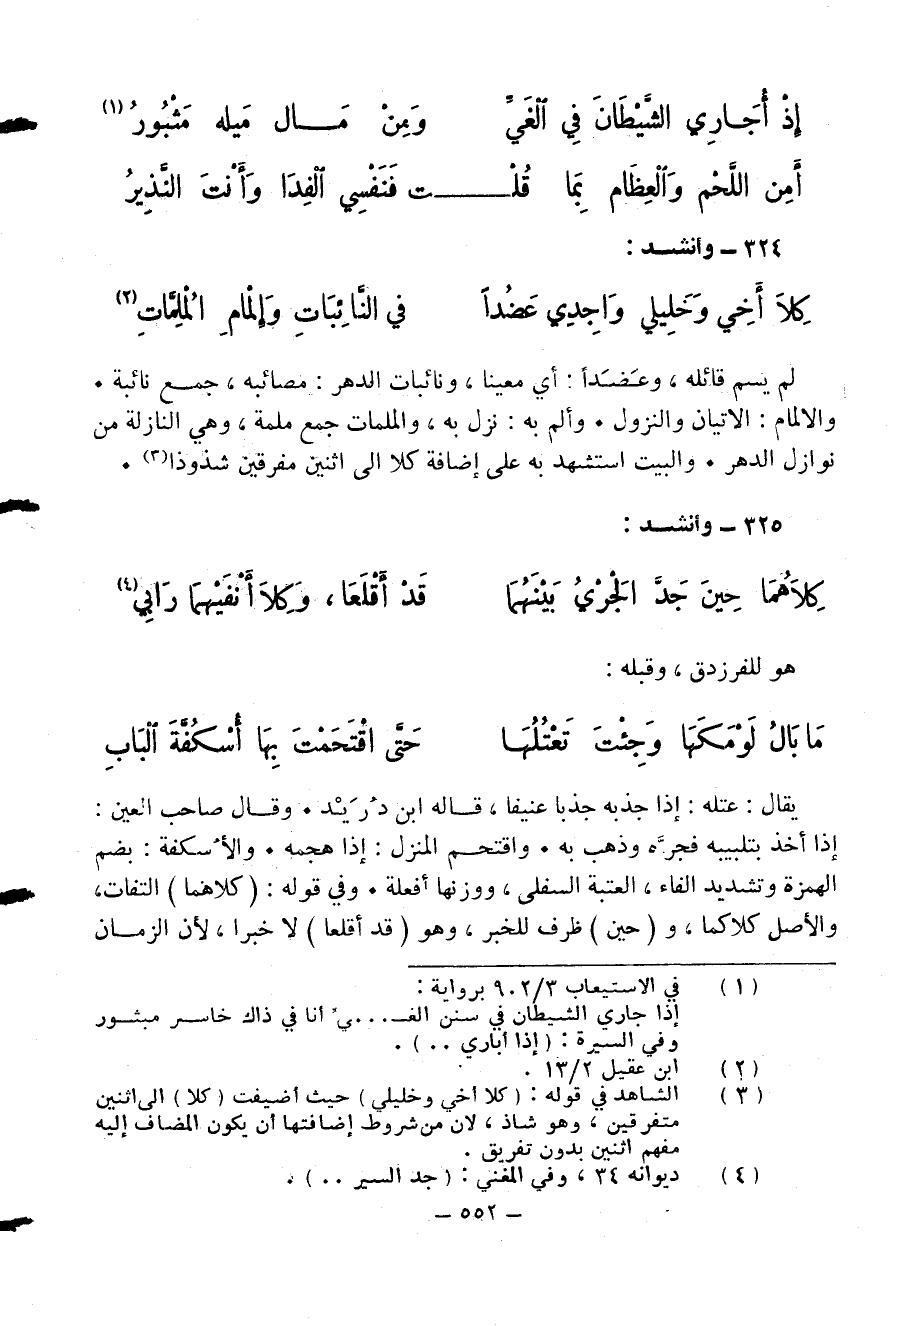 إِذْ أُجَارِي الشَّيْطَانَ فِي ٱلْغَيِّ وَمِنْ مَال مَيله مَثْبُورُ(١)
أَمِن اللَّحْم وَٱلْعِظَام بِمَا قُلْت فَنَفْسِي ٱلْفِدَا وَأَنْتَ النَّذِيرُ
٣٢٤ – وأنشد :
كِلاَ أَخِي وَخَلِيلِي وَاجِدِي عَضُداً فِي النَّائِبَاتِ وَإِلْمَامِ الْمُلِمَّاتِ(٢)
لم يسم قائله ، وعَضُدَاً : أي معينا ، ونائبات الدهر : مصائبه ، جمع نائبة •
والالمام : الاتيان والنزول • وألم به : نزل به ، والملمات جمع ملمة ، وهي النازلة من
نوازل الدهر • والبيت استشهد به على إضافة كلا الى اثنين مفرقين شذوذا(٣) •
٣٢٥ – وأنشد :
كِلاَهُمَا حِينَ جَدَّ الْجَرْيُ بَيْنَهُمَا قَدْ أَقْلَعَا ، وَكِلاَ أَنْفَيْهِمَا رَابِي(٤)
هو للفرزدق ، وقبله :
مَا بَالُ لَوْمَكَهَا وَجِئْتَ تَعْتُلُهَا حَتَّى اقْتَحَمْتَ بِهَا أُسْكُفَّةَ ٱلْبَابِ
يقال : عتله : إذا جذبه جذبا عنيفا ، قاله ابن دُرَيْد • وقال صاحب العين :
إذا أخذ بتلبيبه فجرَّه وذهب به • واقتحم المنزل : إذا هجمه • والأُسكفة : بضم
الهمزة وتشديد الفاء ، العتبة السفلى ، ووزنها أفعلة • وفي قوله : ( كلاهما ) التفات ،
والأصل كلاكما ، و ( حين ) ظرف للخبر ، وهو ( قد أقلعا ) لا خبرا ، لأن الزمان
(١) في الاستيعاب ٩٠٢/٣ برواية :
إذا جاري الشيطان في سنن الغـ...يِّ أنا في ذاك خاسر مبثور
وفي السيرة : ( إذا أباري .. ) .
(٢) ابن عقيل ١٣/٢ .
(٣) الشاهد في قوله : ( كلا أخي وخليلي ) حيث أضيفت ( كلا ) الى اثنين
متفرقين ، وهو شاذ ، لان من شروط إضافتها أن يكون المضاف إليه
مفهم اثنين بدون تفريق .
(٤) ديوانه ٣٤ ، وفي المغني : ( جد السير .. ) .
– ٥٥٢ –